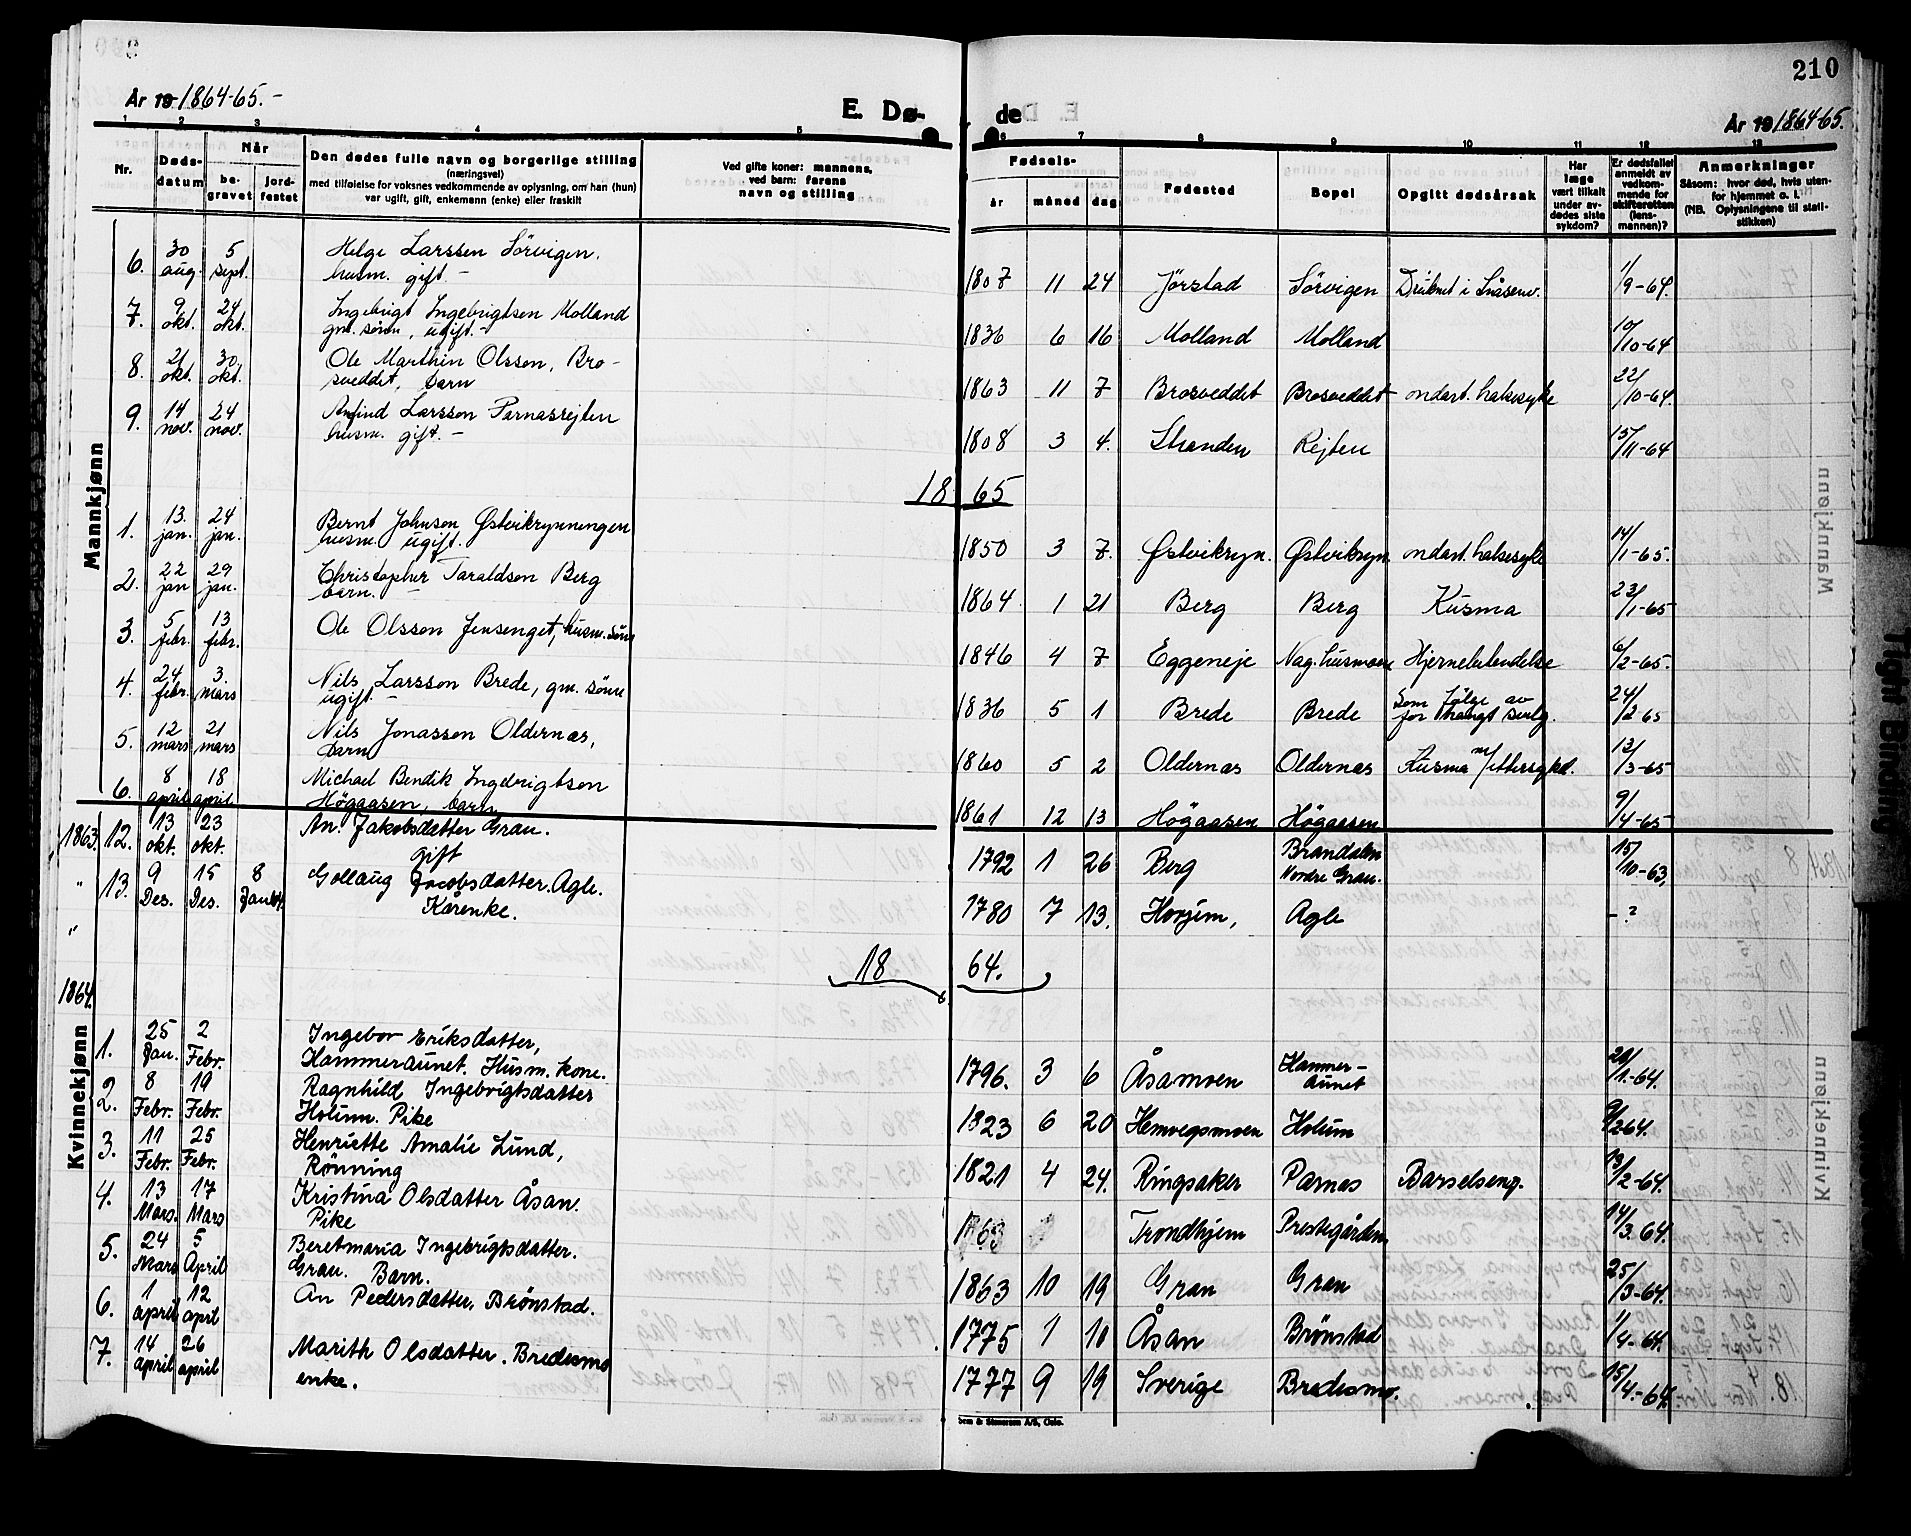 210
År 19 1864-65.-
E. Dø-
de
År 19 1864-65.
1 2 3 4 5 6 7 8 9 10 11 12 13
Nr.
Døds-
datum
Når
be-
gravet
jord-
festet
Den dødes fulle navn og borgerlige stilling
(næringsvei)
med tilføielse for voksnes vedkommende av oplysning, om han (hun)
var ugift, gift, enkemann (enke) eller fraskilt
Ved gifte koner: mannens,
ved barn: farens
navn og stilling
Fødsels-
år måned dag
Fødested
Bopel
Opgitt dødsårsak
Har
læge
vært tilkalt
under av-
dødes siste
sykdom?
Er dødsfallet
anmeldt av
vedkom-
mende for
skifteretten
(lens-
mannen)?
Anmerkninger
Såsom: hvor død, hvis uten-
for hjemmet o. l.
(NB. Oplysningene til stati-
stikken)
Mannkjønn
6. 30 aug. 5 sept. Helge Larssen Sörvigen.
husm. gift - 1807 11 24 Jörstad Sörvigen Druknet i Snåsenv. 1/9-64.
7. 9 okt. 24 okt. Ingebrigt Ingebrigtsen Molland
gm. sönn, ugift.- 1836 6 16 Molland Molland 10/10-64
8. 21 okt. 30 okt. Ole Marthin Olssen, Bro-
sveddet, barn 1863 11 7 Brosveddet Brosveddet ondart. halsesyke 22/10-64.
9. 14 nov. 24 nov. Anfind Larsson Parnasrejten
husm. gift. - 1808 3 4. Stranden Rejten 15/11-64
1865
1. 13. jan. 24 jan. Bernt Johnson Østvikrynningen
husm. ugift. 1850 3 7. Østvikryn. Østvikryn. ondart. halsesyke 14/1-65.
2. 22 jan 29 jan. Christopher Taraldson Berg
barn. - 1864 1 21 Berg Berg Kusma 23/1-65
3. 5 febr. 13 febr. Ole Olsson Jensenget, husm. sönn 1846 4 7 Eggeneje Nag. husmoen Hjernebetendelse 6/2-65.
4. 24 febr. 3. mars Nils Larsson Brede, gm. sönn
ugift - 1836 5 1 Brede Brede Som fölge av
for trangt svelg. 24/2-65
5. 12 mars 21 mars Nils Jonasson Oldernæs,
barn 1860 5 2 Oldernæs Oldernæs Kusma m/ettersykd. 13/3-65
6. 8 april 18 april. Michael Bendik Ingebrigtson
Högaasen, barn 1861 12 13 Högaasen Högaasen 9/4-65
Kvinnekjønn
1863. 12. 13 okt. 23 okt. An. Jakobsdatter Grau.
gift 1792 1 26 Berg Brandalen
Nordre Grau. 15/10-63.
" 13. 9 Des. 15 Des. 8 Jan 64. Gollaug Jacobsdatter. Agle.
Kårenke. 1780 7 13. Horjem, Agle - ?
"
1864.
1864.
1. 25 Jan. 2 Febr. Ingebor Eriksdatter,
Hammeraunet. Husm. kone. 1796. 3 6 Åsamoen Hammer-
aunet 26/1-64.
2. 8 Febr. 19 Febr. Ragnhild Ingebrigtsdatter
Holum. Pike 1823 6 20 Hemvegsmoen Holum 9/2 64.
3. 11 Febr. 25 Febr. Henriette Amalie Lund,
Rönning 1821 4 24. Ringsaker Parnas Barselseng. 13/2-64.
4. 13 Mars. 17 Mars Kristina Olsdatter Åsan.
Pike 1863 Trondhjem Prestegården 14/3 64.
5. 24 Mars 5 April Beretmaria Ingebrigtsdatter.
Grau. Barn. 1863 10 19 Gran Gran 25/3-64.
6. 1 april 12 april An Pedersdatter, Brönstad. 1775 1 10 Åsan Brönstad 1/4-64.
7. 14 april 26 april Marith Olsdatter. Bredesmo
enke. 1777 9 19 Sverige Bredesmo. 15/4-64.
Tight Binding